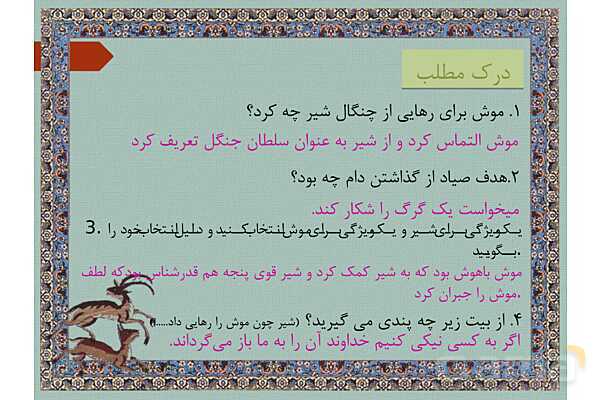 درک مطلب
۱. موش برای رهایی از چنگال شیر چه کرد؟
موش التماس کرد و از شیر به عنوان سلطان جنگل تعریف کرد
۲.هدف صیاد از گذاشتن دام چه بود؟
میخواست یک گرگ را شکار کند.
3. یک‌ویژگی‌برای‌شیر و یک‌ویژگی‌برای‌موش‌انتخاب‌کنید و دلیل‌انتخاب‌خود را
بگویید.
موش باهوش بود که به شیر کمک کرد و شیر قوی پنجه هم قدرشناس بودکه لطف
موش را جبران کرد.
۴. از بیت زیر چه پندی می گیرید؟ (شیر چون موش را رهایی داد.....)
اگر به کسی نیکی کنیم خداوند آن را به ما باز می‌گرداند.